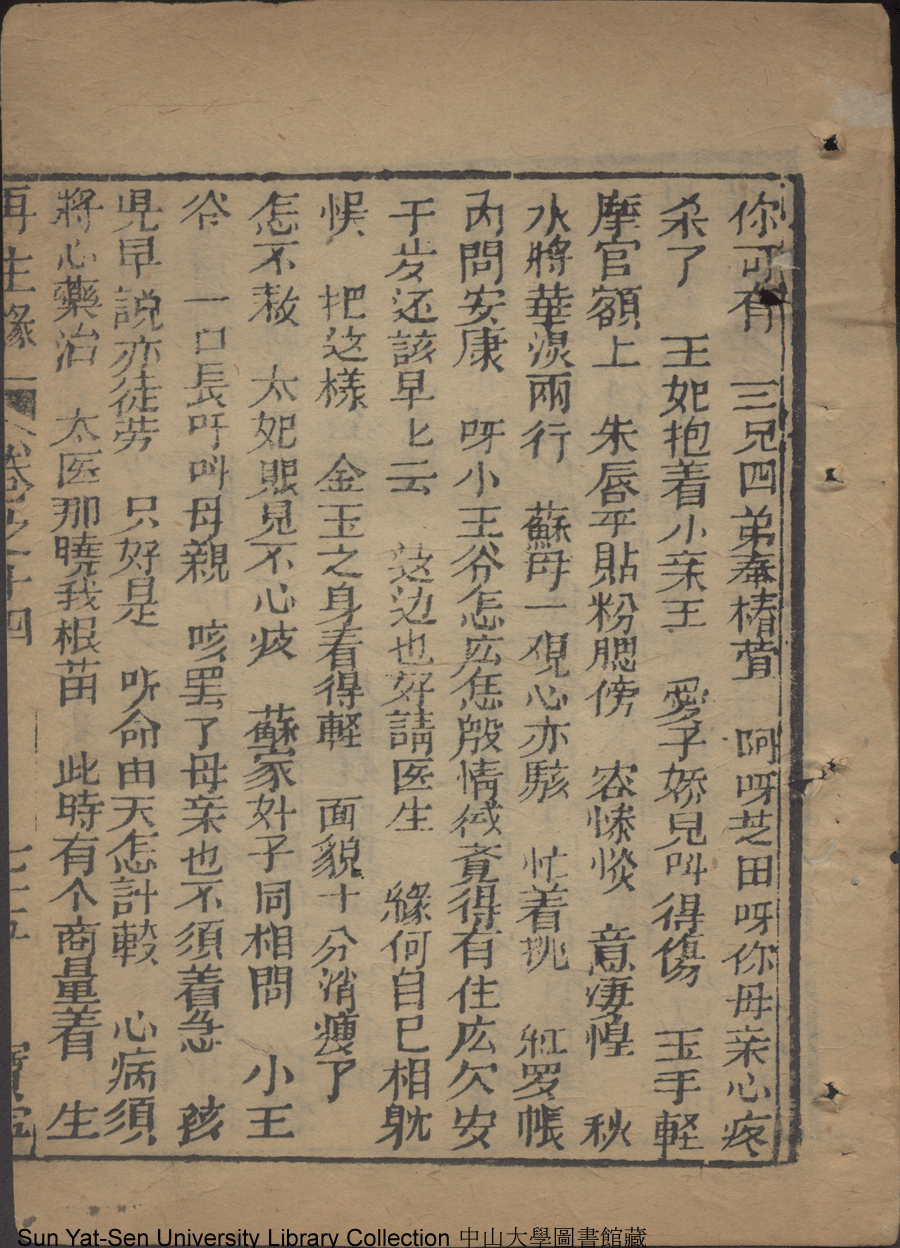 你可有　三兄四弟奉椿萱　阿呀芝田呀你母亲心疼
杀了　王妃抱着小亲王　愛子娇兒呌得傷　玉手軽
摩官額上　朱唇平貼粉腮傍　容慘惔　意凄惶　秋
水將華淚兩行　蘇母一覌心亦駭　忙着挑　紅罗帳
內問安康　呀小王爷怎庅恁般情﻿ 竟得有住庅欠安
千歩还該早匕云　这边也好請医生　緣何自已相躭
悞　把这樣　金玉之身看得輕　面貌十分消瘦了
怎不救　太妃既見不心疲　蘇家奸子同相問　小王
爷　一口長吁呌母親　咳罢了母亲也不須着急　孩
児早説亦徒劳　只好是　听命由天怎計較　心病須
將心藥治　太医那曉我根苗　此時有个商量着　生
再生縁　卷之十四　七十五　寶寧
Sun Yat-Sen University Library Collection 中山大學圖書館藏